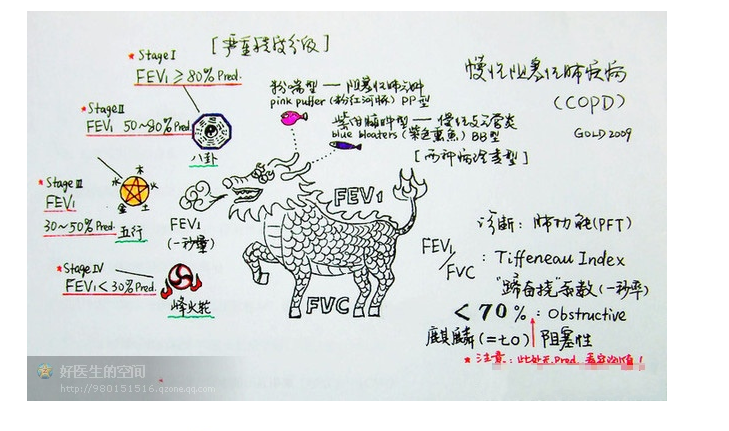 [严重程度分级]
* Stage I
FEV1 ≥ 80% Pred.
* Stage II
FEV1 50~80% Pred.
八卦
* Stage III
FEV1
30~50% Pred.
木
火
水
金 土
五行
* Stage IV
FEV1 < 30% Pred.
烽火轮
FEV1
(一秒量)
粉喘型 — 阻塞性肺气肿
pink puffer (粉红河豚) PP型
紫绀臃肿型 — 慢性支气管炎
blue bloaters (紫色熏鱼) BB型
[两种病理类型]
慢性阻塞性肺疾病
(COPD)
GOLD 2009
FEV1
FVC
诊断: 肺功能(PFT)
FEV1/FVC : Tiffeneau Index
"蹄奋挠"系数 (一秒率)
< 70% : Obstructive
麒麟(=七0) 阻塞性
* 注意: 此处无 Pred.
好医生的空间
http://980151516.qzone.qq.com